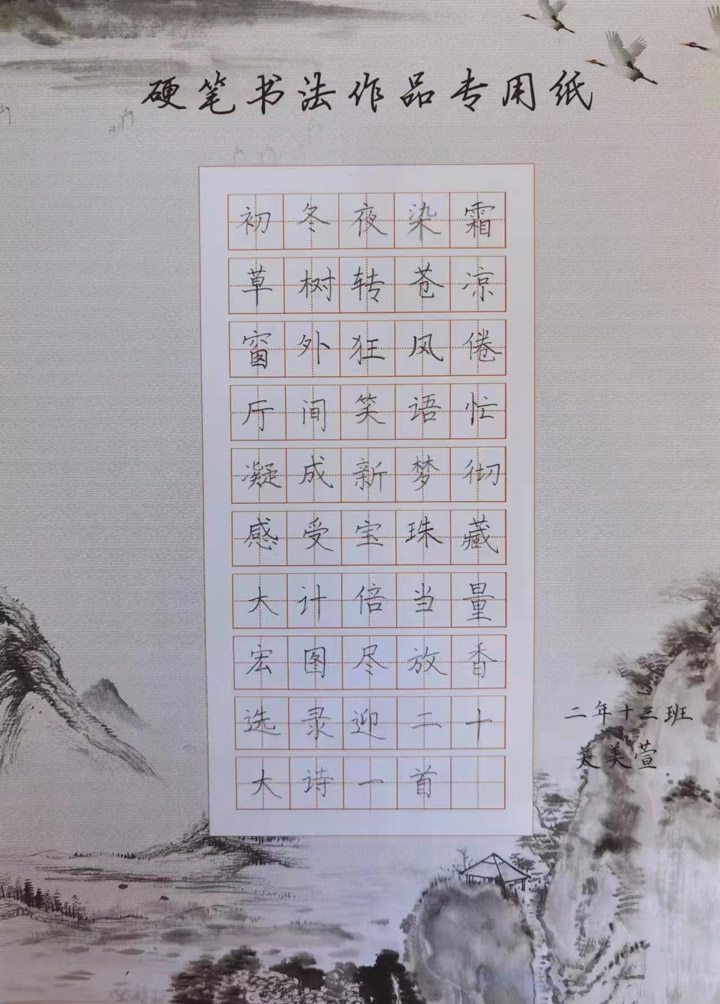 硬笔书法作品专用纸
初冬夜染霜
草树转苍凉
窗外狂风倦
厅间笑语忙
凝成新梦彻
感受宝珠藏
大计倍当量
宏图尽放香
选录迎二十
大诗一首
二年十三班
美萱